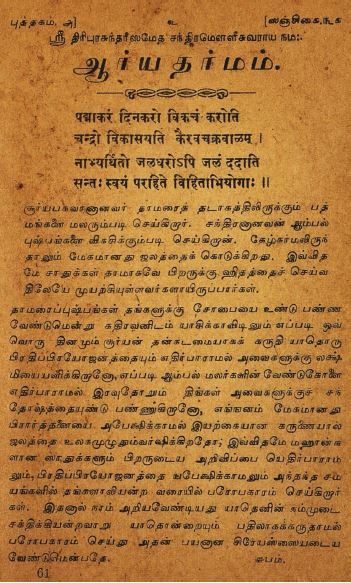 புத்தகம, அ] உ [ஸஞ்சிகை, ந.க
ஸ்ரீ திரிபுரசுந்தரீஸமேத சந்திரமௌளீசுவராய நம:.
ஆர்யதர்மம்.
पद्माकरं दिनकरो विकचं करोति
चन्द्रो विकासयति कैरवचक्रवालम् ।
नाभ्यर्थितो जलधरोऽपि जलं ददाति
सन्तः स्वयं परहिते विहिताभियोगाः ॥
சூர்யபகவானானவர் தாமரைத் தடாகத்திலிருக்கும் பத்
மங்களை மலரும்படி செய்கிறார். சந்திரனானவன் ஆம்பல்
புஷ்பங்களை விகஸிக்கும்படி செய்கிறான். கேழ்காமலிருந்
தாலும் மேகமானது ஜலத்தைக் கொடுக்கிறது. இவ்வித
மே சாதுக்கள் தாமாகவே பிறருக்கு ஹிதத்தைச் செய்வ
திலேயே முயற்சியுள்ளவர்களாயிருப்பார்கள்.
தாமரைப்புஷ்பங்கள் தங்களுக்கு சோபையை உண்டுபண்ண
வேண்டுமென்று கதிரவனிடம் யாசிக்காவிடினும் எப்படி ஒவ்
வொரு தினமும் சூர்யன் தன் கடமையாகக் கருதி யாதொரு
பிரதிப்பிரயோஜனத்தையும் எதிர்பாராமல் அவைகளுக்கு லக்ஷ்
மியையளிக்கிறானோ, எப்படி ஆம்பல் மலர்களின் வேண்டுகோளை
எதிர்பாராமல் இரவுதோறும் திங்கள் அவைகளுக்குச் சந்
தோஷத்தையுண்டு பண்ணுகிறானோ, எங்ஙனம் மேகமானது
பிரார்த்தனையை அபேக்ஷிக்காமல் இயற்கையான கருணையால்
ஜலத்தை உலகமுழுதும் வர்ஷிக்கிறதோ; இவ்விதமே மஹான்க
ளான ஸாதுக்களும் பிறருடைய அறிவிப்பை யெதிர்பாராம
லும், பிரதிப்பிரயோஜனத்தை யபேக்ஷிக்காமலும் அந்தந்த சம
யங்களில் தங்களாலியன்ற வரையில் பரோபகாரம் செய்கிறார்
கள். இதனால் நாம் அறியவேண்டியது யாதெனின் நம்முடைய
சக்திக்கியன்றவாறு யாதொன்றையும் பதிலாகக்கருதாமல்
பரோபகாரம் செய்து அதன் பயனான சிரேயஸ்ஸையடைய
வேண்டுமென்பதே. சுபம்.
61